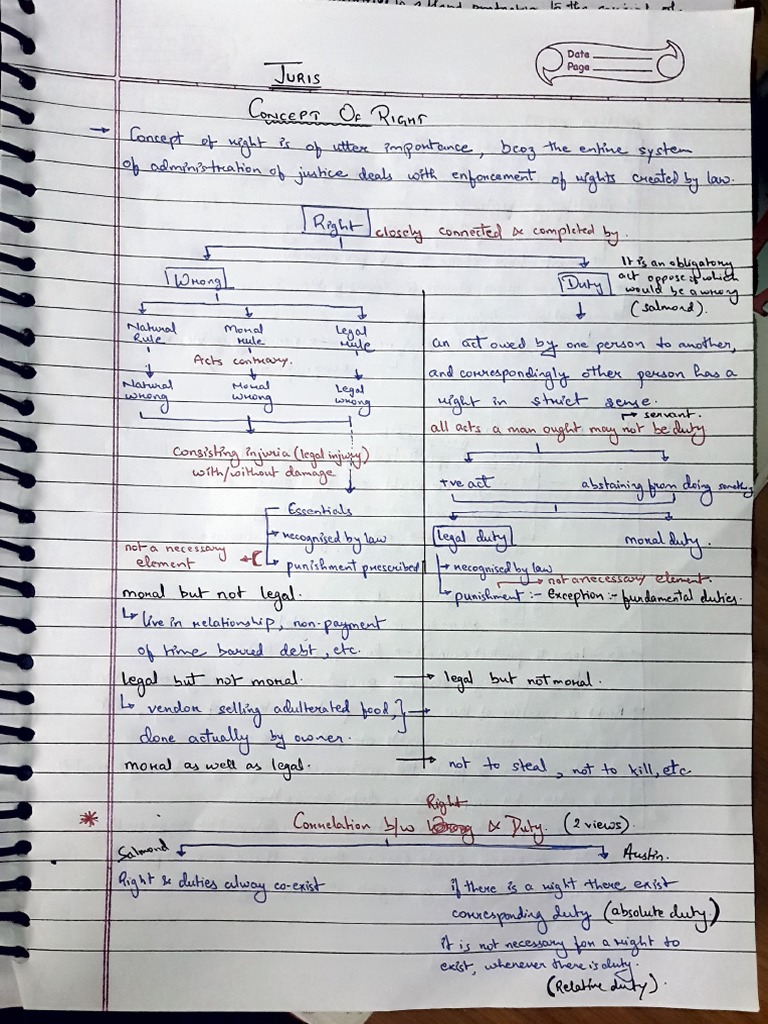 Date
Page
JURIS
CONCEPT OF RIGHT
→ Concept of right is of utter importance, bcoz the entire system
of administration of justice deals with enforcement of rights created by law.
Right closely connected & completed by.
Wrong
Duty
It is an obligatory
act opposite of which
would be a wrong
(Salmond).
Natural Rule
Moral rule
Legal rule
Acts contrary.
Natural wrong
Moral wrong
Legal wrong
Consisting injuria (legal injury)
with/without damage
Essentials
recognised by law
punishment prescribed
not a necessary
element
moral but not legal.
↳ live in relationship, non-payment
of time barred debt, etc.
legal but not moral.
↳ vendor selling adulterated food,
done actually by owner.
moral as well as legal.
an act owed by one person to another,
and correspondingly other person has a
right in strict sense.
→ servant.
all acts a man ought may not be duty
+ve act
abstaining from doing something
legal duty
moral duty.
recognised by law
→ not a necessary element.
punishment :- Exception :- fundamental duties.
→ legal but not moral.
→ not to steal, not to kill, etc
Right
* Correlation b/w & Duty. (2 views).
Salmond
Austin.
Right & duties alway co-exist
if there is a right there exist
corresponding duty (absolute duty.)
it is not necessary for a right to
exist, whenever there is duty.
(Relative duty).